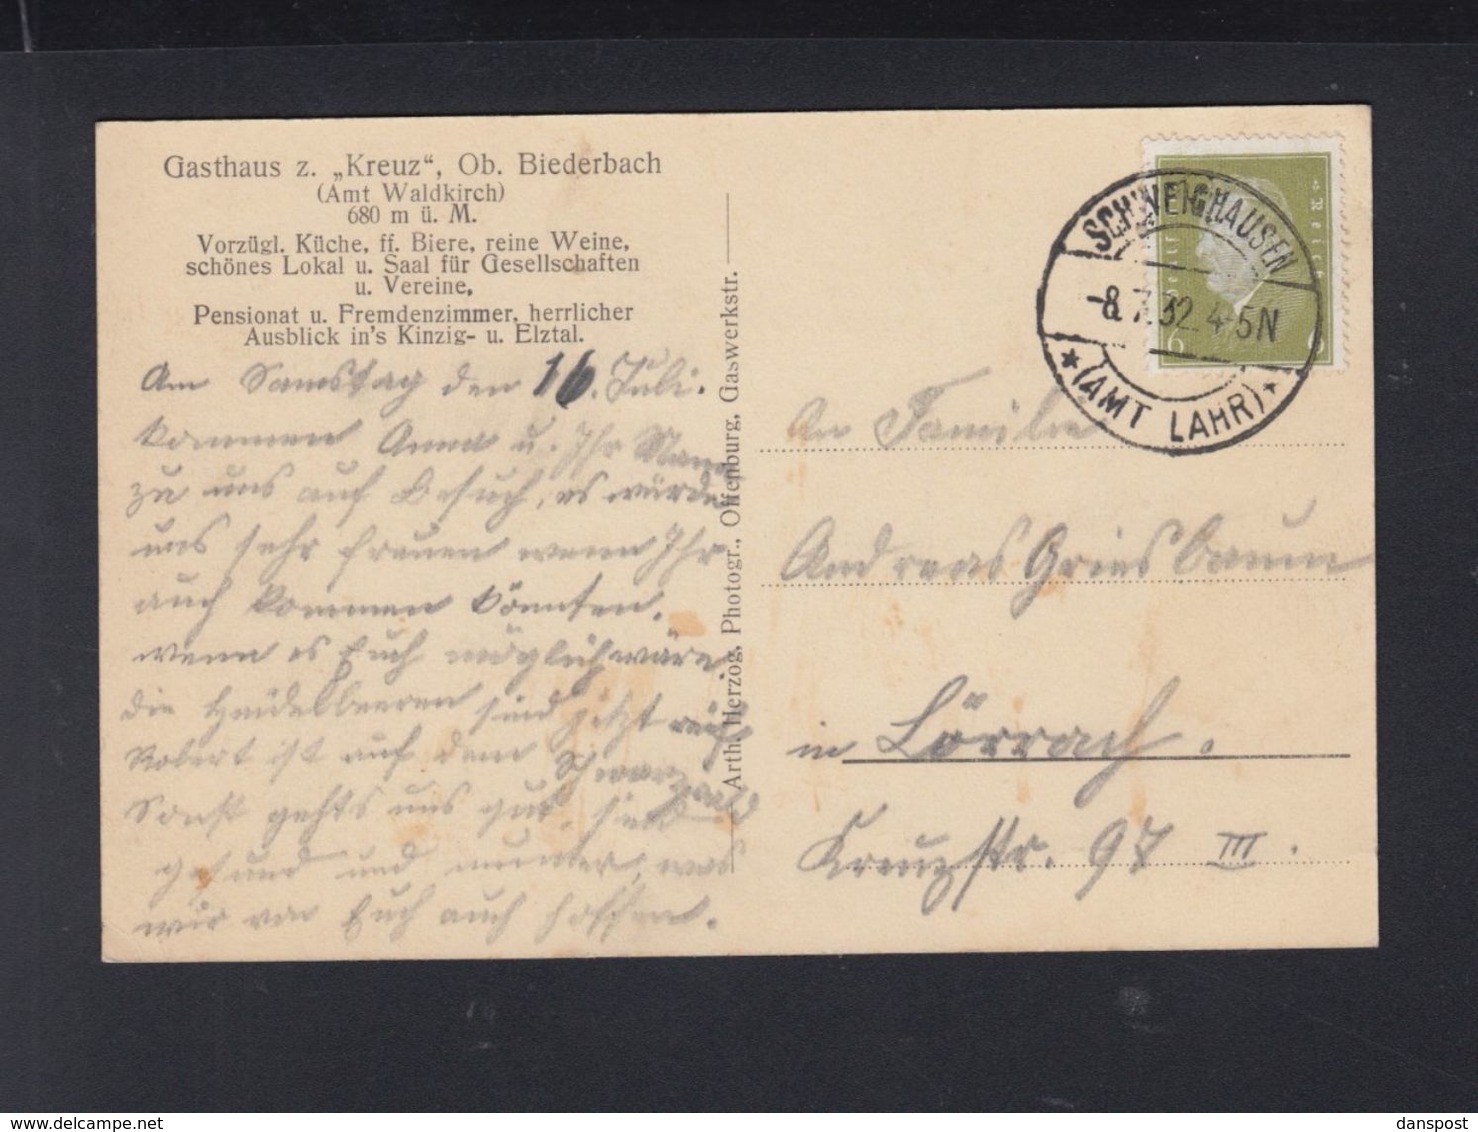 Gasthaus z. „Kreuz“, Ob. Biederbach
(Amt Waldkirch)
680 m ü. M.
Vorzügl. Küche, ff. Biere, reine Weine,
schönes Lokal u. Saal für Gesellschaften
u. Vereine,
Pensionat u. Fremdenzimmer, herrlicher
Ausblick in's Kinzig- u. Elztal.
Am Samstag den 16. Juli.
kommen Anna u. Ihr Mann
zu uns auf Besuch, es würde
uns sehr freuen wenn Ihr
auch kommen könnten.
wenn es Euch möglich wäre.
die Heidelbeeren sind jetzt reif
Robert ist auf dem Schwarzwald
Sonst gehts uns gut, sind
gesund und munter, was
wir von Euch auch hoffen.
Arth. Herzog, Photogr., Offenburg, Gaswerkstr.
SCHWEIGHAUSEN
-8.7.32.4-5N
(AMT LAHR)
6
An Familie
Andreas Griesbaum
in Lörrach.
Kreuzstr. 97 III.
danspost